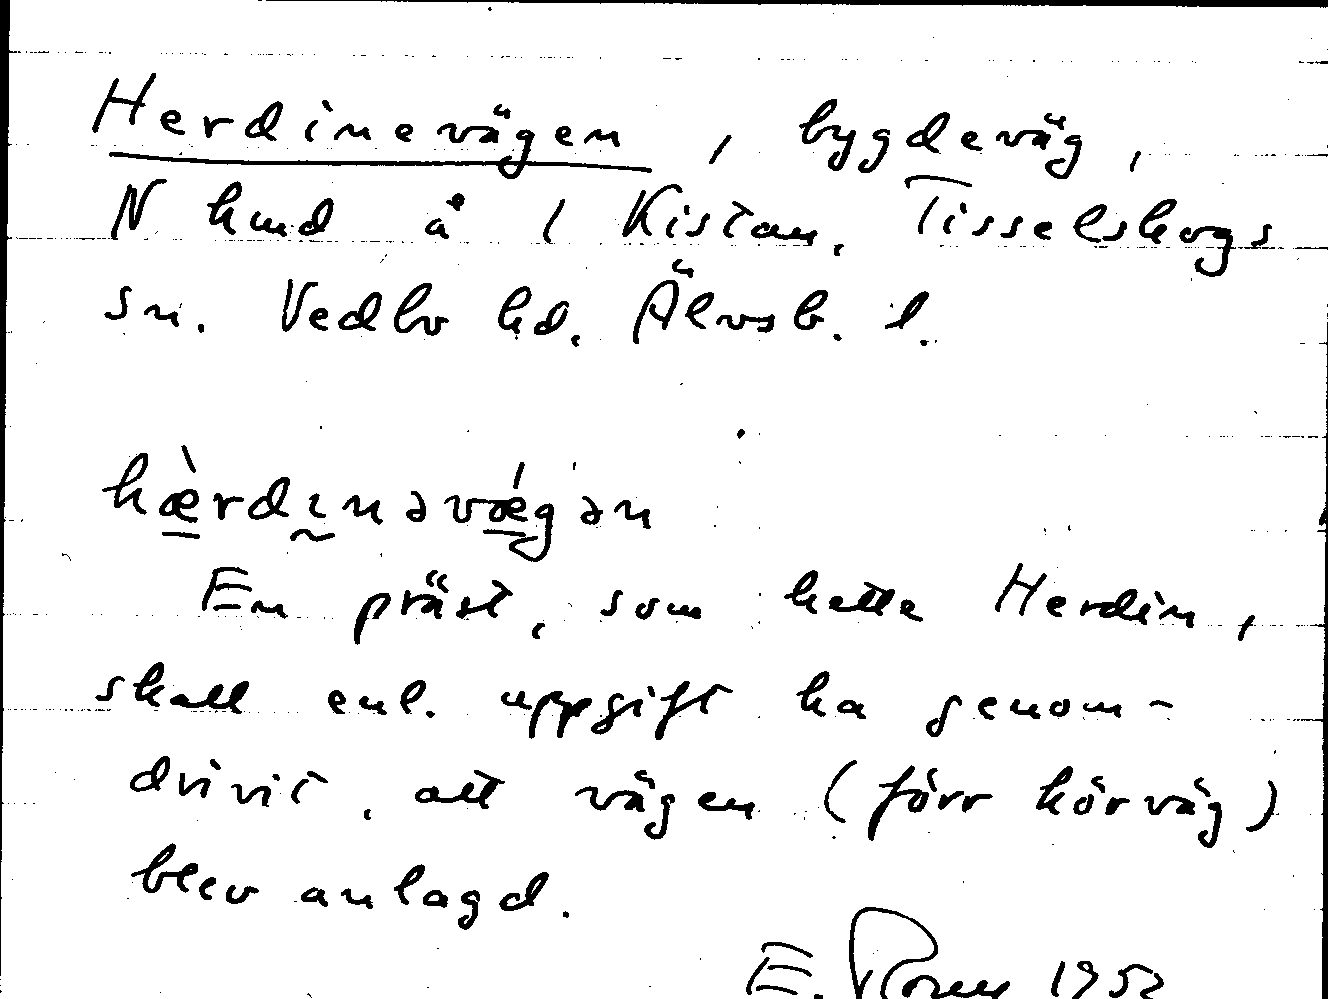 Herdinevägen, bygdeväg,
N hmd å 1 Kistan, Tisselskogs
sn. Vedbo hd. Älvsb. l.
hæ̀rdɩnəvǽgən
En präst, som hette Herdin,
skall enl. uppgift ha genom-
drivit, att vägen (förr körväg)
blev anlagd.
E. 1952